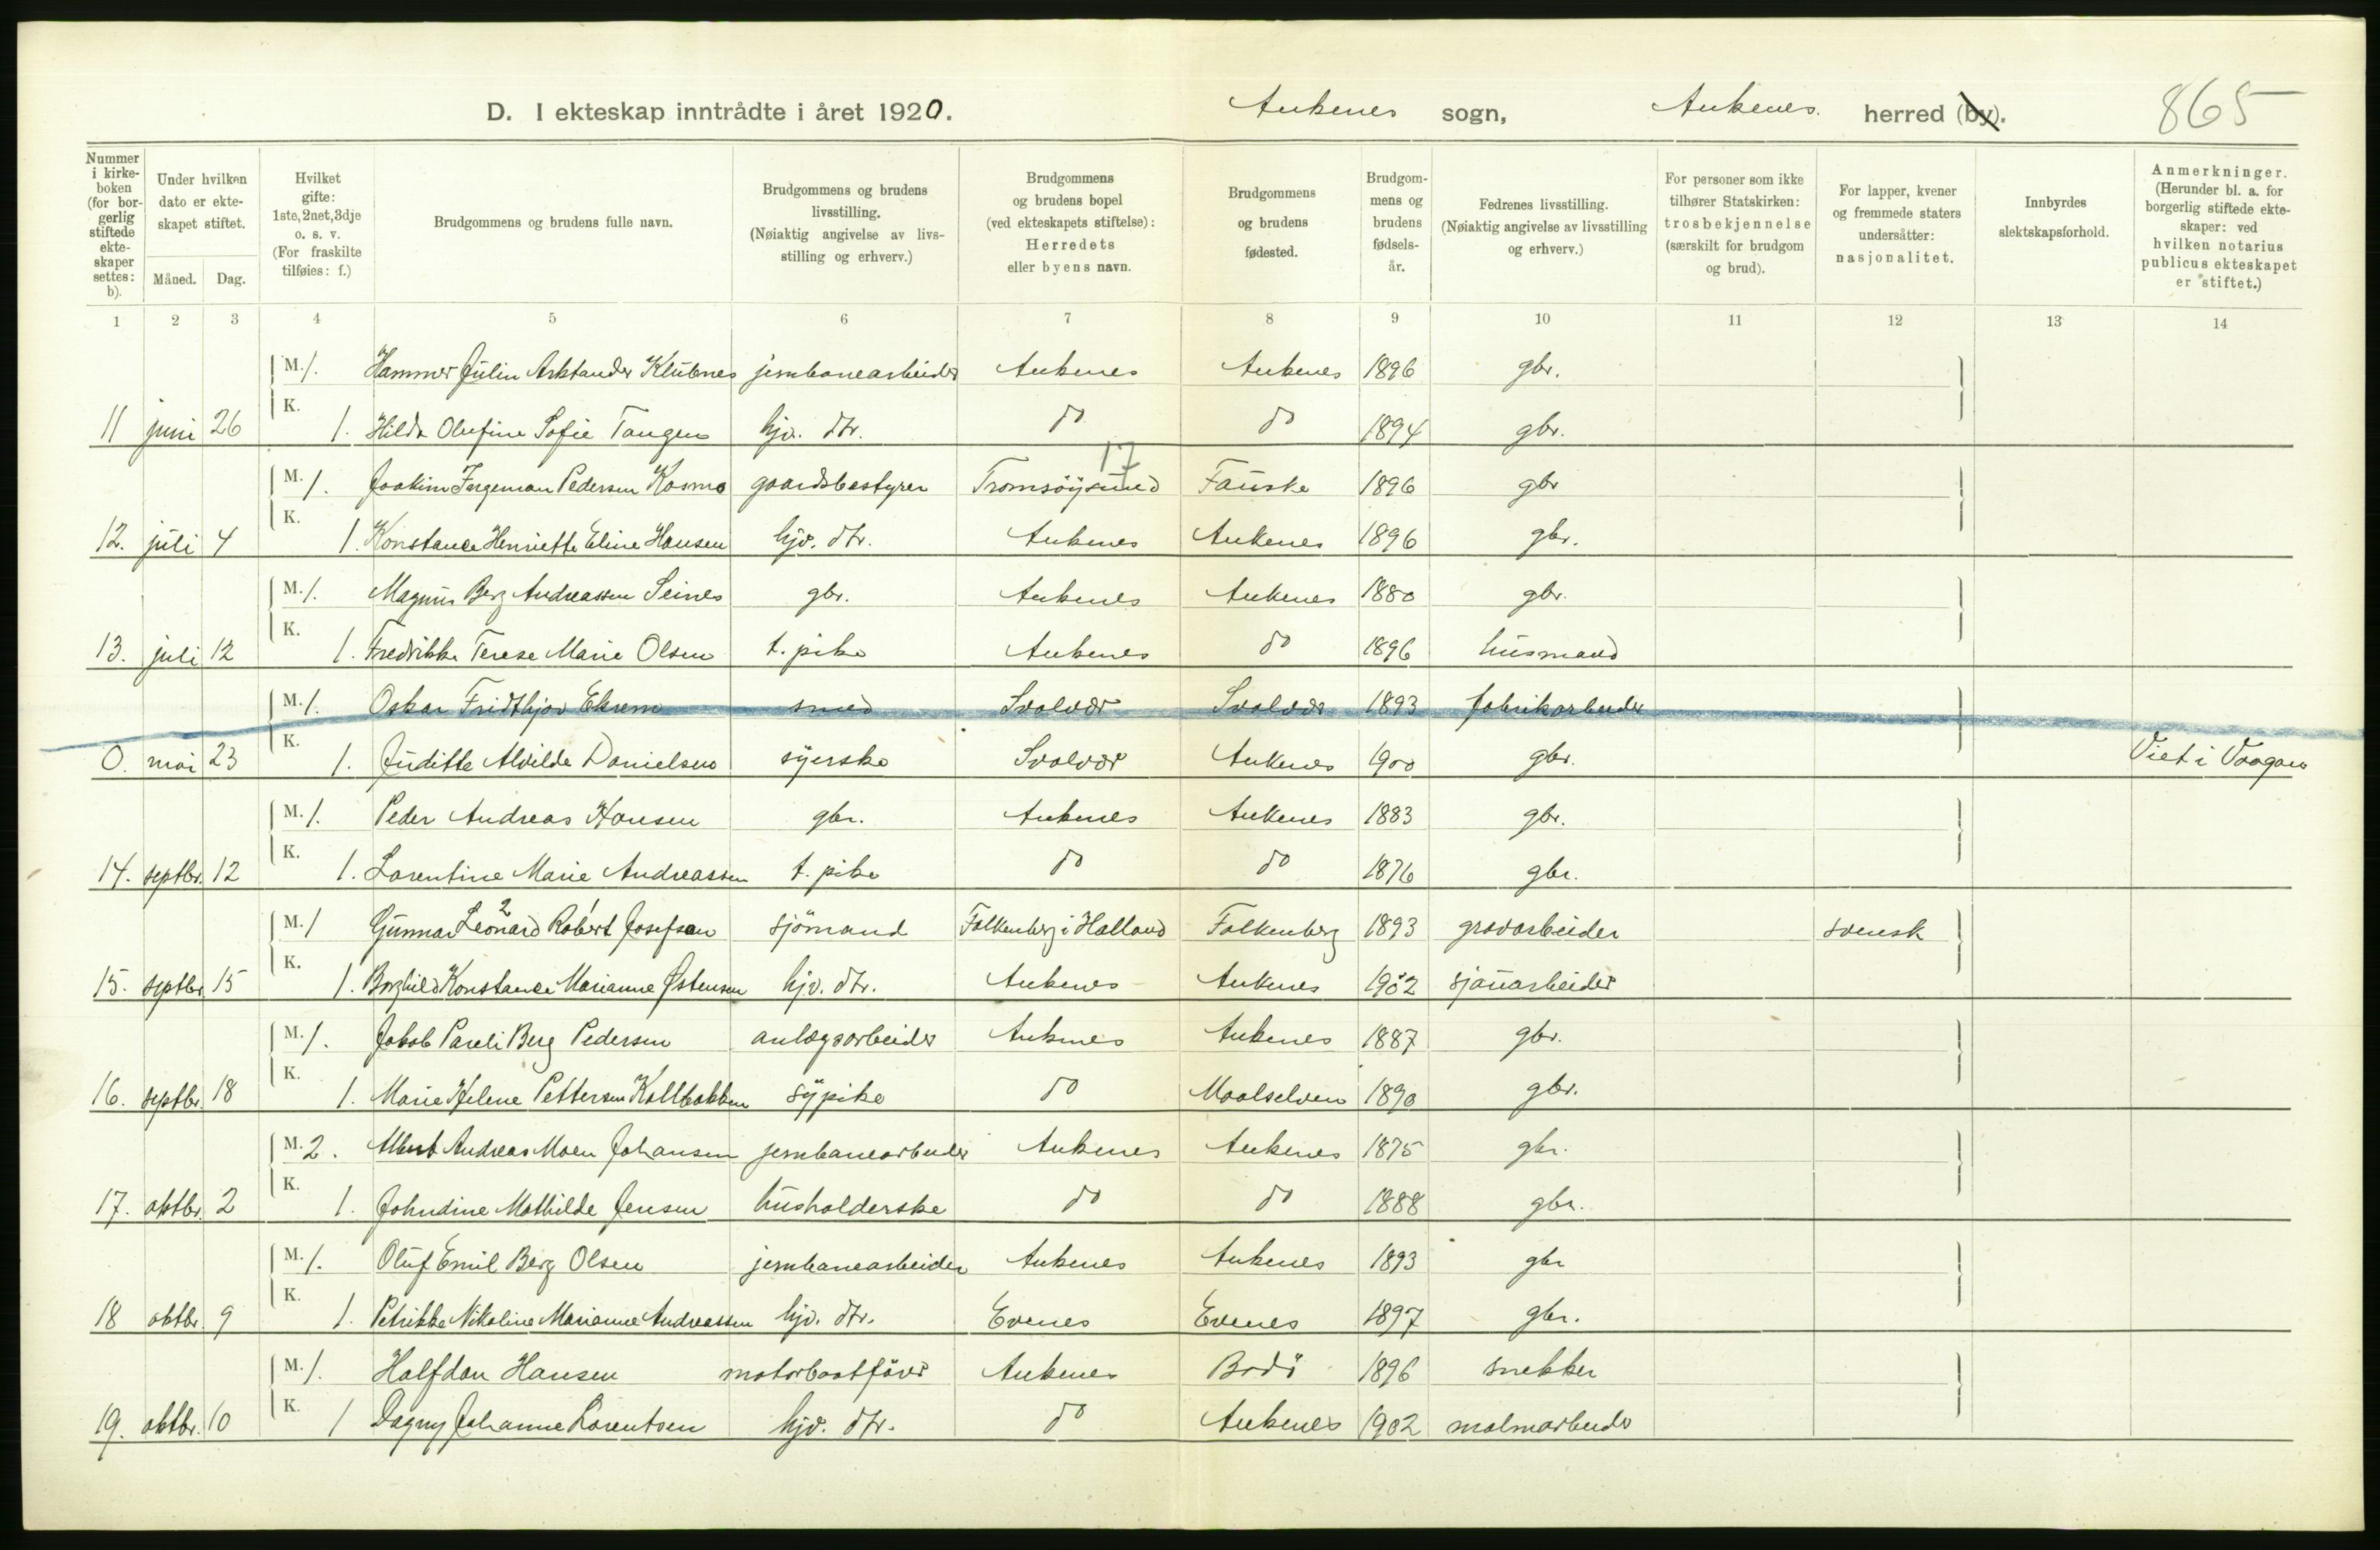 D. I ekteskap inntrådte i året 1920. Ankenes sogn, Ankenes. herred (by). 865
Nummer i kirkeboken (for borgerlig stiftede ekteskaper settes: b).
Under hvilken dato er ekteskapet stiftet.
Måned.
Dag.
Hvilket gifte: 1ste, 2net, 3dje o. s. v. (For fraskilte tilføies: f.)
Brudgommens og brudens fulle navn.
Brudgommens og brudens livsstilling. (Nøiaktig angivelse av livsstilling og erhverv.)
Brudgommens og brudens bopel (ved ekteskapets stiftelse): Herredets eller byens navn.
Brudgommens og brudens fødested.
Brudgommens og brudens fødselsår.
Fedrenes livsstilling. (Nøiaktig angivelse av livsstilling og erhverv.)
For personer som ikke tilhører Statskirken: trosbekjennelse (særskilt for brudgom og brud).
For lapper, kvener og fremmede staters undersåtter: nasjonalitet.
Innbyrdes slektskapsforhold.
Anmerkninger. (Herunder bl. a. for borgerlig stiftede ekteskaper: ved hvilken notarius publicus ekteskapet er stiftet.)
1 2 3 4 5 6 7 8 9 10 11 12 13 14
M. 1. Hammer Julin Arktander Klubnes jernbanearbeider Ankenes Ankenes 1896 gbr.
11 juni 26 K. 1. Hilda Olufine Sofie Tangen hjv. dtr. do do 1894 gbr.
17
M. 1. Joakim Ingeman Pedersen Kosmo gaardsbestyrer Tromsöysund Fauske 1896 gbr
12. juli 4 K. 1. Konstance Henriette Eline Hansen hjv. dtr. Ankenes Ankenes 1896 gbr.
M. 1. Magnus Berg Andreassen Seines gbr. Ankenes Ankenes 1880 gbr.
13. juli 12 K. 1. Fredrikke Terese Marie Olsen t. pike Ankenes do 1896 husmand
M. 1. Oskar Fridthjov Ekrem smed Svolvær Svolvær 1893 fabrikarbeider
0. mai 23 K. 1. Juditte Alvilde Danielsen syerske Svolvær Ankenes 1900 gbr. Viet i Vaagan
M. 1. Peder Andreas Hansen gbr. Ankenes Ankenes 1883 gbr.
14. septbr. 12 K. 1. Lorentine Marie Andreassen t. pike do do 1876 gbr.
M. 1 Gunnar 2 Leonard 1 Robert Josefson sjömand Falkenberg i Halland Falkenberg 1893 gravarbeider svensk
15. septbr. 15 K. 1. Borghild Konstance Marianne Østensen hjv. dtr. Ankenes Ankenes 1902 sjauarbeider
M. 1. Jakob Pareli Berg Pedersen anlægsarbeider Ankenes Ankenes 1887 gbr.
16. septbr. 18 K. 1. Marie Helene Pettersen Kallbakken sypike do Maalselven 1890 gbr.
M. 2. Albert Andreas Moen Johansen jernbanearbeider Ankenes Ankenes 1875 gbr.
17. oktbr. 2 K. 1. Johndine Mathilde Jensen husholderske do do 1888 gbr.
M. 1. Oluf Emil Berg Olsen jernbanearbeider Ankenes Ankenes 1893 gbr
18 oktbr. 9 K. 1. Petrikke Nikoline Marianne Andreassen hjv. dtr. Evenes Evenes 1897 gbr.
M. 1. Halfdan Hansen motorbaatförer Ankenes Bodö 1896 snekker
19. oktbr. 10 K. 1 Dagny Johanne Lorentsen hjv. dtr. do Ankenes 1902 malmarbeider